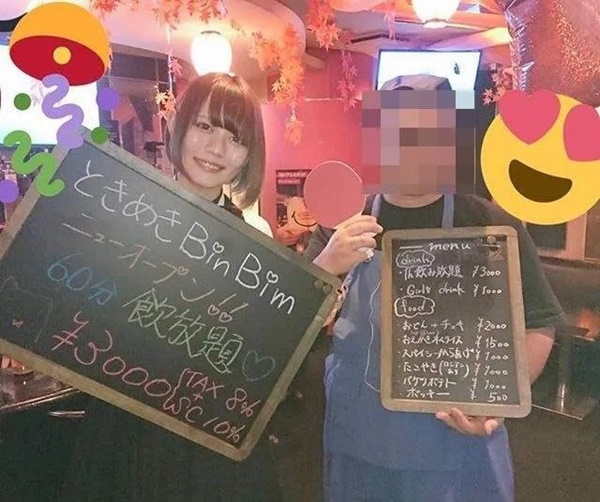 ときめきBinBim
ニューオープン!!
60分 飲放題♡
¥3000 TAX 8%
+
SC 10%
menu
drink
飲み放題 ¥3000
・Girls drink ¥1000
food
おでん+チェキ ¥2000
オムライス ¥1500
スパイシーからあげ ¥1000
たこやき ¥1000
バケツポテト ¥1000
ポッキー ¥500